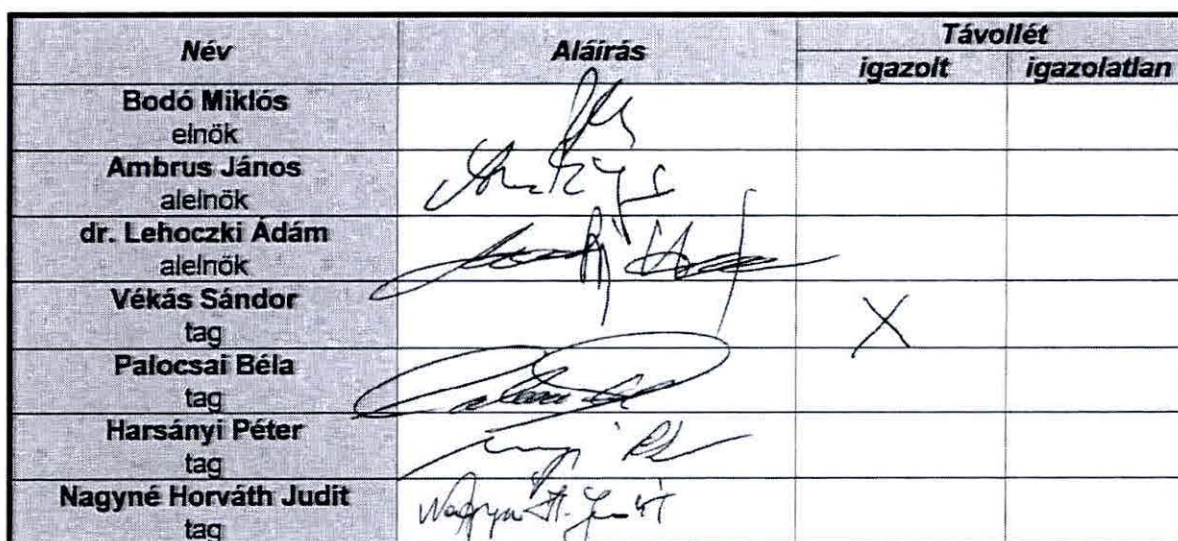 Név Aláírás Távollét
igazolt igazolatlan
Bodó Miklós
elnök
Ambrus János
alelnök
dr. Lehoczki Ádám
alelnök
Vékás Sándor
tag
X
Palocsai Béla
tag
Harsányi Péter
tag
Nagyné Horváth Judit
tag
Nagyné H. Judit